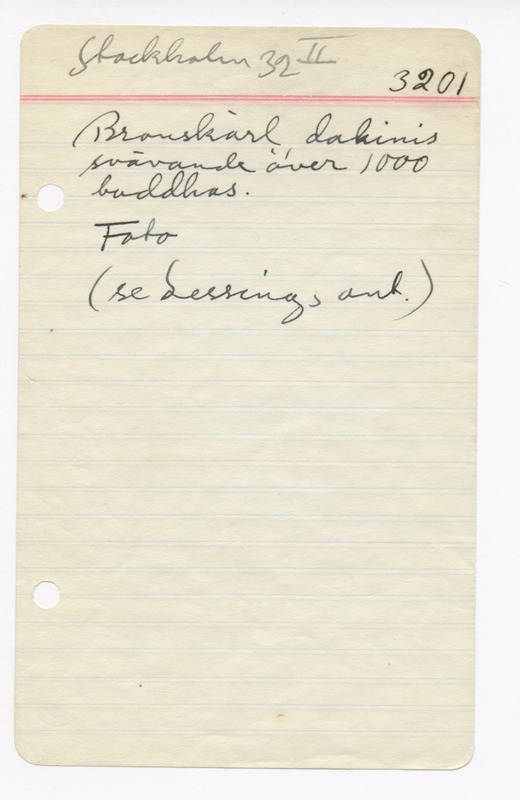 Stockholm 32 II
3201
Bronskärl, dakinis
svävande över 1000
buddhas.
Foto
(se Lessings ant.)